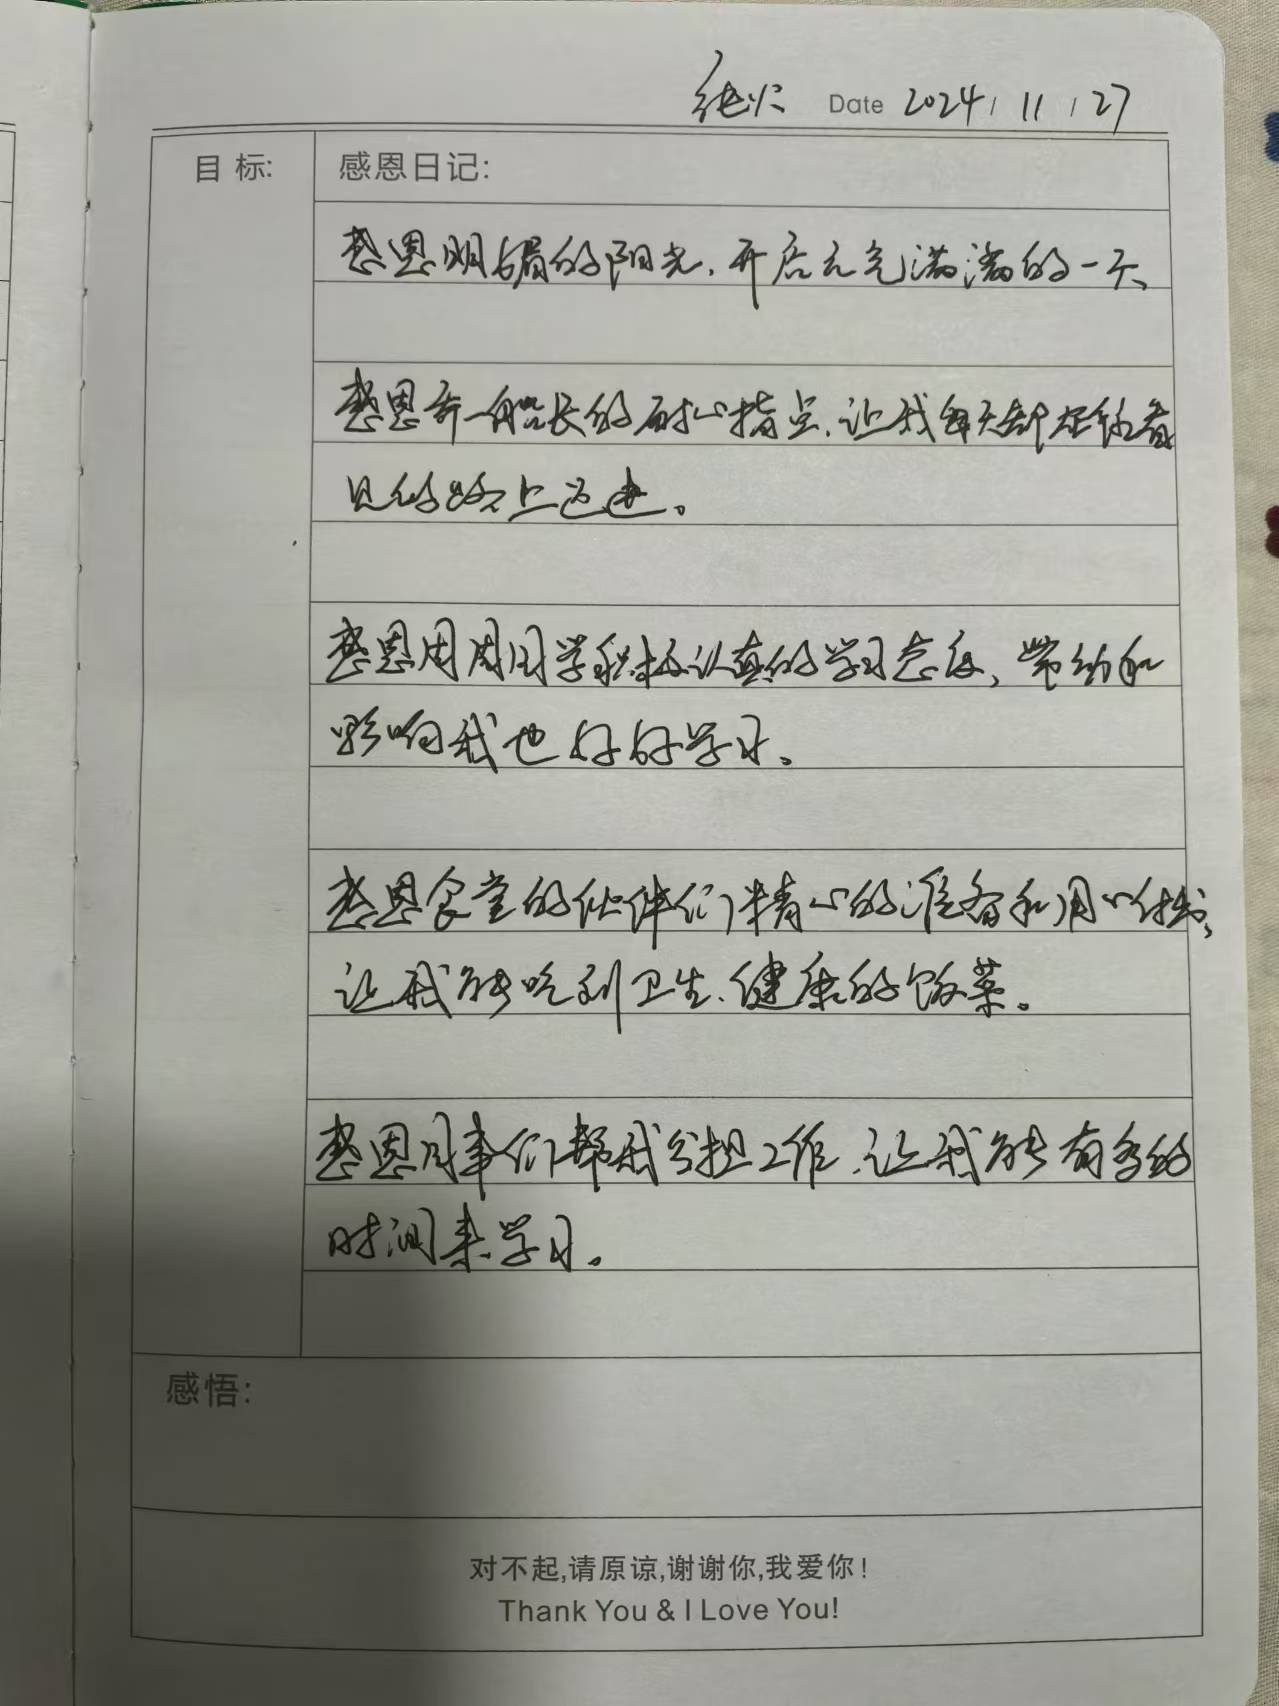 Date 2024 / 11 / 27
目标: 感恩日记:
感恩明媚的阳光、开启元气满满的一天、
感恩齐一船长的耐心指点、让我每天都在
见的路上迈进。
感恩周周同学积极认真的学习态度、带动和
影响我也好好学习。
感恩食堂的伙伴们精心的准备和用心付出、
让我能吃到卫生、健康的饭菜。
感恩同事们帮我分担工作、让我能有多的
时间来学习。
感悟:
对不起,请原谅,谢谢你,我爱你!
Thank You & I Love You!